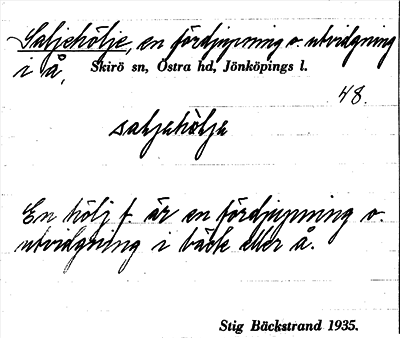 Saljehölje, en fördjupning o. utvidgning
i å,
Skirö sn, Östra hd, Jönköpings l.
48.
saljehölje
En hölj f. är en fördjupning o.
utvidgning i bäck eller å.
Stig Bäckstrand 1935.